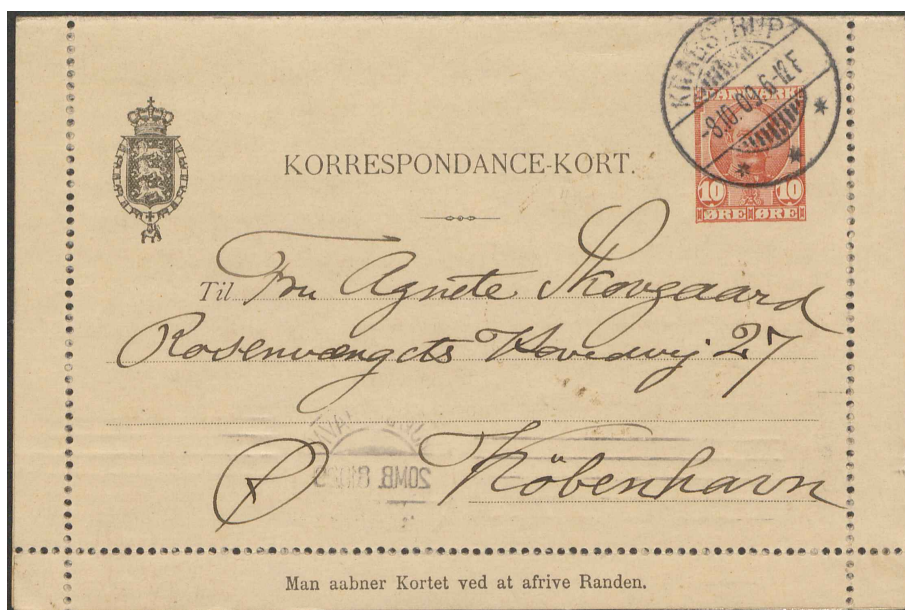 KRAGSTRUP
-8.10.09.6-12F
DANMARK
10 10
ØRE ØRE
KORRESPONDANCE-KORT.
Til Fru Agnete Skovgaard
Rosenvængets Hovedvej 27
Ø København
20MB.
Man aabner Kortet ved at afrive Randen.